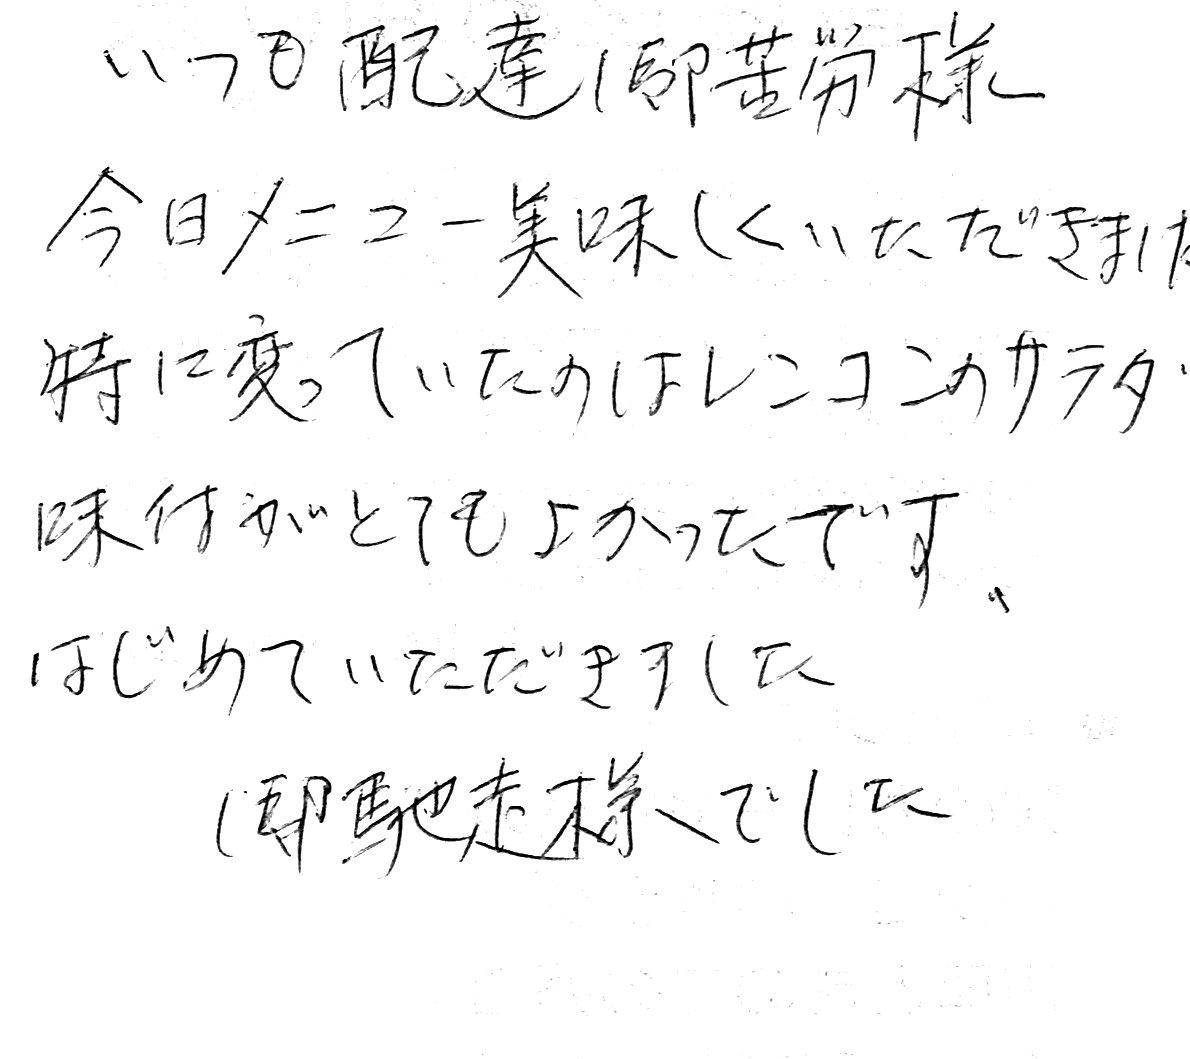 いつも配達御苦労様
今日メニュー美味しくいただきました
特に変っていたのはレンコンのサラダ
味付がとてもよかったです、
はじめていただきました
御馳走様でした